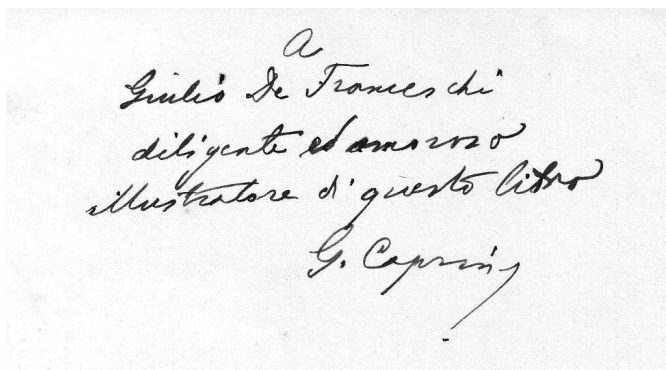 A
Giulio De Franceschi
diligente ed amoroso
illustratore di questo libro
G. Caprin